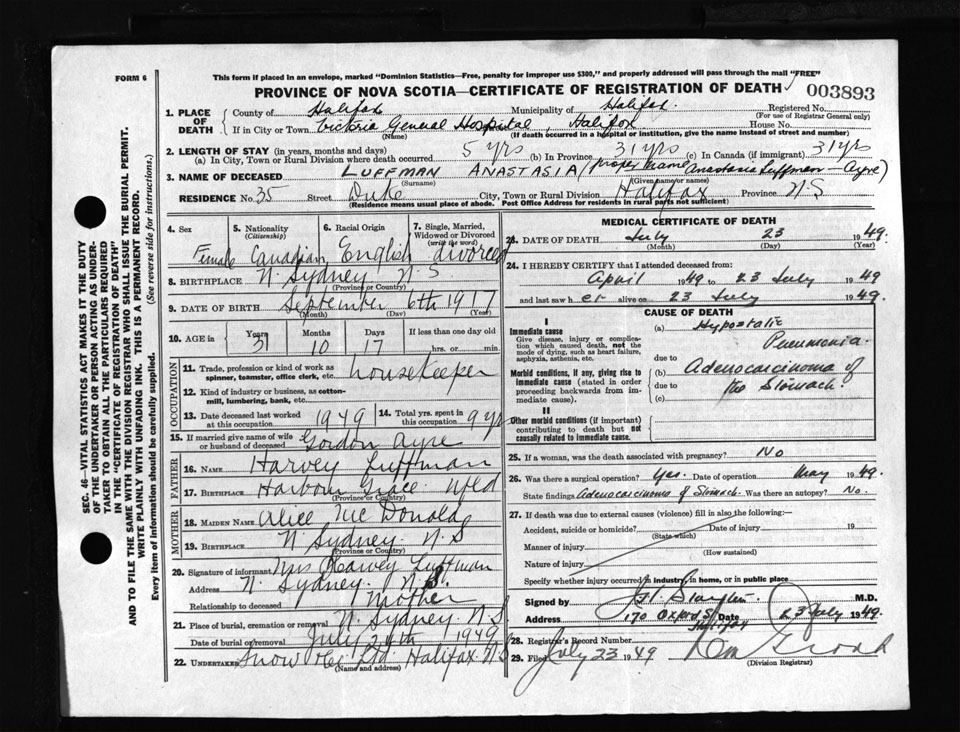 FORM 6
This form if placed in an envelope, marked "Dominion Statistics—Free, penalty for improper use $300," and properly addressed will pass through the mail "FREE"
PROVINCE OF NOVA SCOTIA—CERTIFICATE OF REGISTRATION OF DEATH
003893
1. PLACE OF DEATH
County of Halifax Municipality of Halifax. Registered No.
(For use of Registrar General only)
If in City or Town Victoria General Hospital, Halifax House No.
(Name) (If death occurred in a hospital or institution, give the name instead of street and number)
2. LENGTH OF STAY (in years, months and days)
(a) In City, Town or Rural Division where death occurred 5 yrs (b) In Province 31 yrs (c) In Canada (if immigrant) 31 yrs
3. NAME OF DECEASED LUFFMAN ANASTASIA (proper name Anastasia Luffman-Ayre)
(Surname) (Given name or names)
RESIDENCE No. 35 Street Duke City, Town or Rural Division Halifax Province N S
(Residence means usual place of abode. Post Office Address for residents in rural parts not sufficient)
SEC. 46—VITAL STATISTICS ACT MAKES IT THE DUTY
OF THE UNDERTAKER OR PERSON ACTING AS UNDER-
TAKER TO OBTAIN ALL THE PARTICULARS REQUIRED
IN THE "CERTIFICATE OF REGISTRATION OF DEATH"
AND TO FILE THE SAME WITH THE DIVISION REGISTRAR WHO SHALL ISSUE THE BURIAL PERMIT.
WRITE PLAINLY WITH UNFADING INK. THIS IS A PERMANENT RECORD.
Every item of information should be carefully supplied. (See reverse side for instructions.)
4. Sex 5. Nationality (Citizenship) 6. Racial Origin 7. Single, Married, Widowed or Divorced (write the word)
Female Canadian English divorced
8. BIRTHPLACE N. Sydney N.S.
(Province or Country)
9. DATE OF BIRTH September 6th 1917
(Month) (Day) (Year)
10. AGE in Years Months Days If less than one day old
31 10 17 hrs. or min.
OCCUPATION
11. Trade, profession or kind of work as spinner, teamster, office clerk, etc. housekeeper
12. Kind of industry or business, as cotton-mill, lumbering, bank, etc.
13. Date deceased last worked at this occupation 1949 14. Total yrs. spent in this occupation 9 yrs
15. If married give name of wife or husband of deceased Gordon Ayre
FATHER
16. NAME Harvey Luffman
17. BIRTHPLACE Harbour Grace Nfld
(Province or Country)
MOTHER
18. MAIDEN NAME Alice McDonald
19. BIRTHPLACE N. Sydney. N.S
(Province or Country)
20. Signature of informant Mrs Harvey Luffman
Address N. Sydney. N.S.
Relationship to deceased Mother
21. Place of burial, cremation or removal N. Sydney. N.S
Date of burial or removal July 24th 1949
22. Undertaker Snow Ltd. Halifax N.S
(Name and address)
MEDICAL CERTIFICATE OF DEATH
23. DATE OF DEATH July 23 1949.
(Month) (Day) (Year)
24. I HEREBY CERTIFY that I attended deceased from:
April 1949 to 23 July 1949
and last saw her alive on 23 July 1949.
CAUSE OF DEATH
I
Immediate cause
Give disease, injury or complication which caused death, not the mode of dying, such as heart failure, asphyxia, asthenia, etc.
(a) Hypostatic Pneumonia.
due to
Morbid conditions, if any, giving rise to immediate cause (stated in order proceeding backwards from immediate cause).
(b) Adenocarcinoma of the Stomach.
due to
(c)
II
Other morbid conditions (if important) contributing to death but not causally related to immediate cause.
25. If a woman, was the death associated with pregnancy? No
26. Was there a surgical operation? Yes. Date of operation May 1949.
State findings Adenocarcinoma of Stomach. Was there an autopsy? No.
27. If death was due to external causes (violence) fill in also the following:—
Accident, suicide or homicide? Date of injury 19
(State which)
Manner of injury
(How sustained)
Nature of injury
Specify whether injury occurred in industry, in home, or in public place
Signed by M.D.
Address 170 Oxford St Halifax Date 23 July 1949.
28. Registrar's Record Number
29. Filed July 23 1949
(Division Registrar)